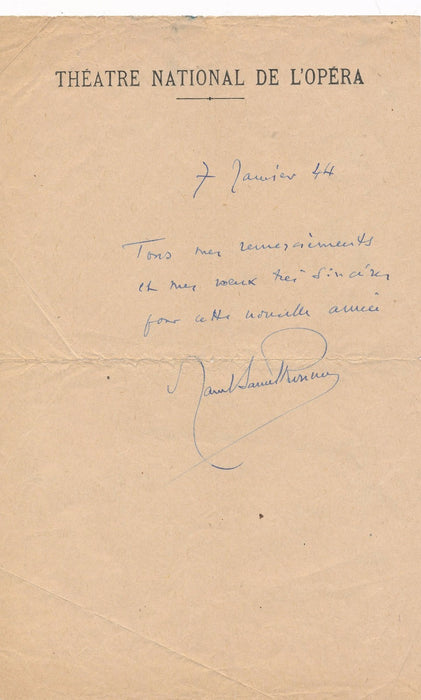 THÉATRE NATIONAL DE L'OPÉRA
7 Janvier 44
Tous mes remerciements
et mes vœux très sincères
pour cette nouvelle année
Marcel Samuel Rousseau